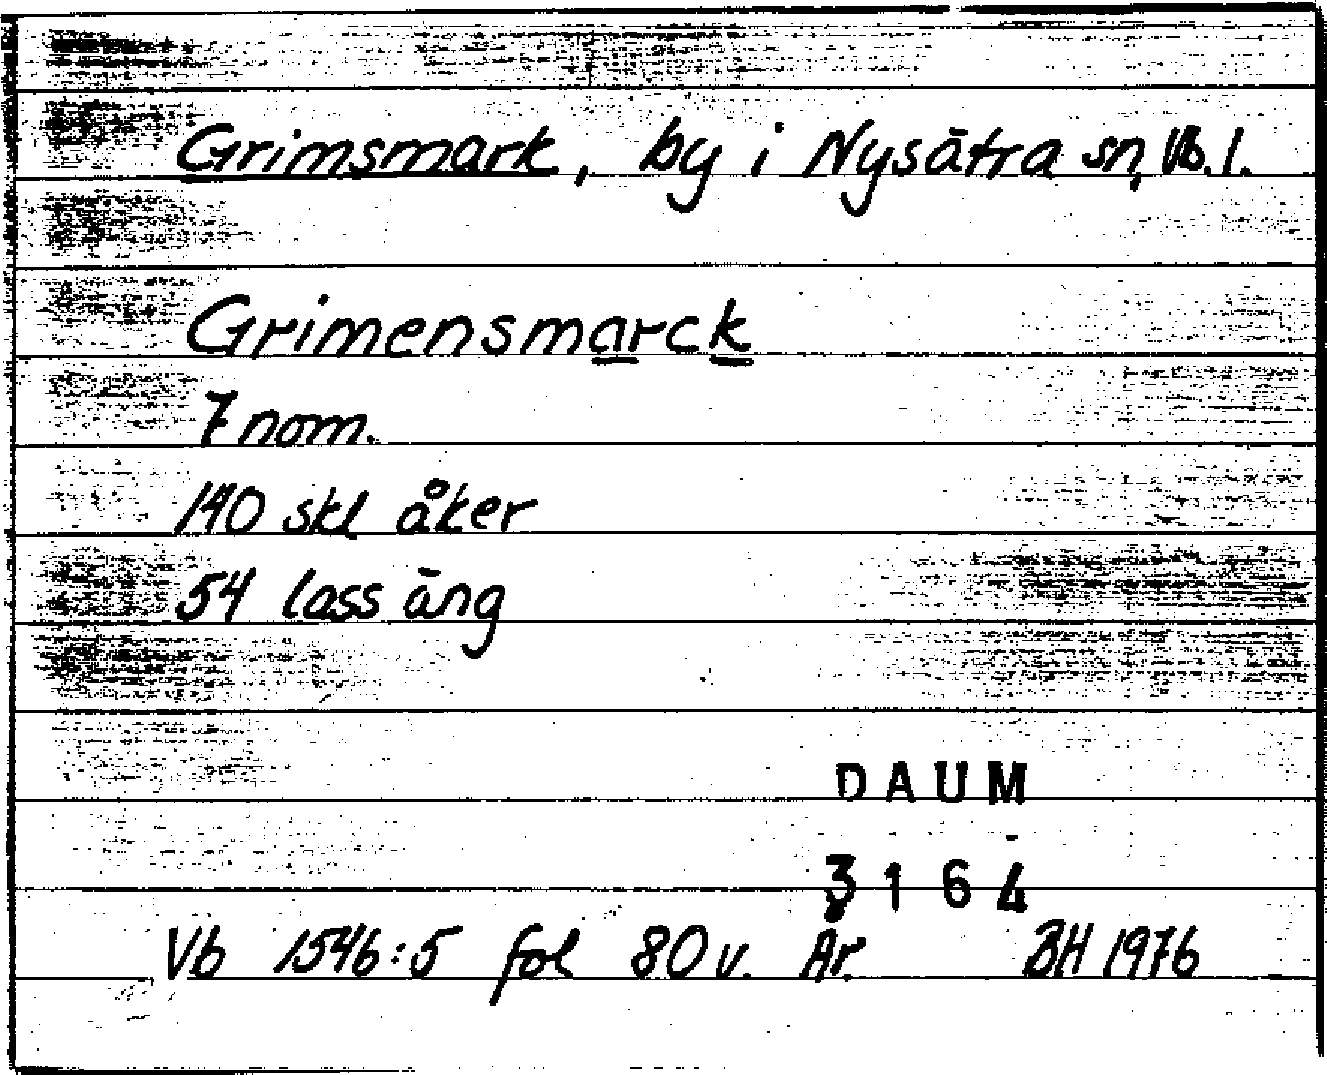 Grimsmark, by i Nysätra sn, Vb. l.
Grimensmarck
7 nom.
140 skl åker
54 lass äng
DAUM
3164
Vb 1546:5 fol 80 v. År. BH 1976